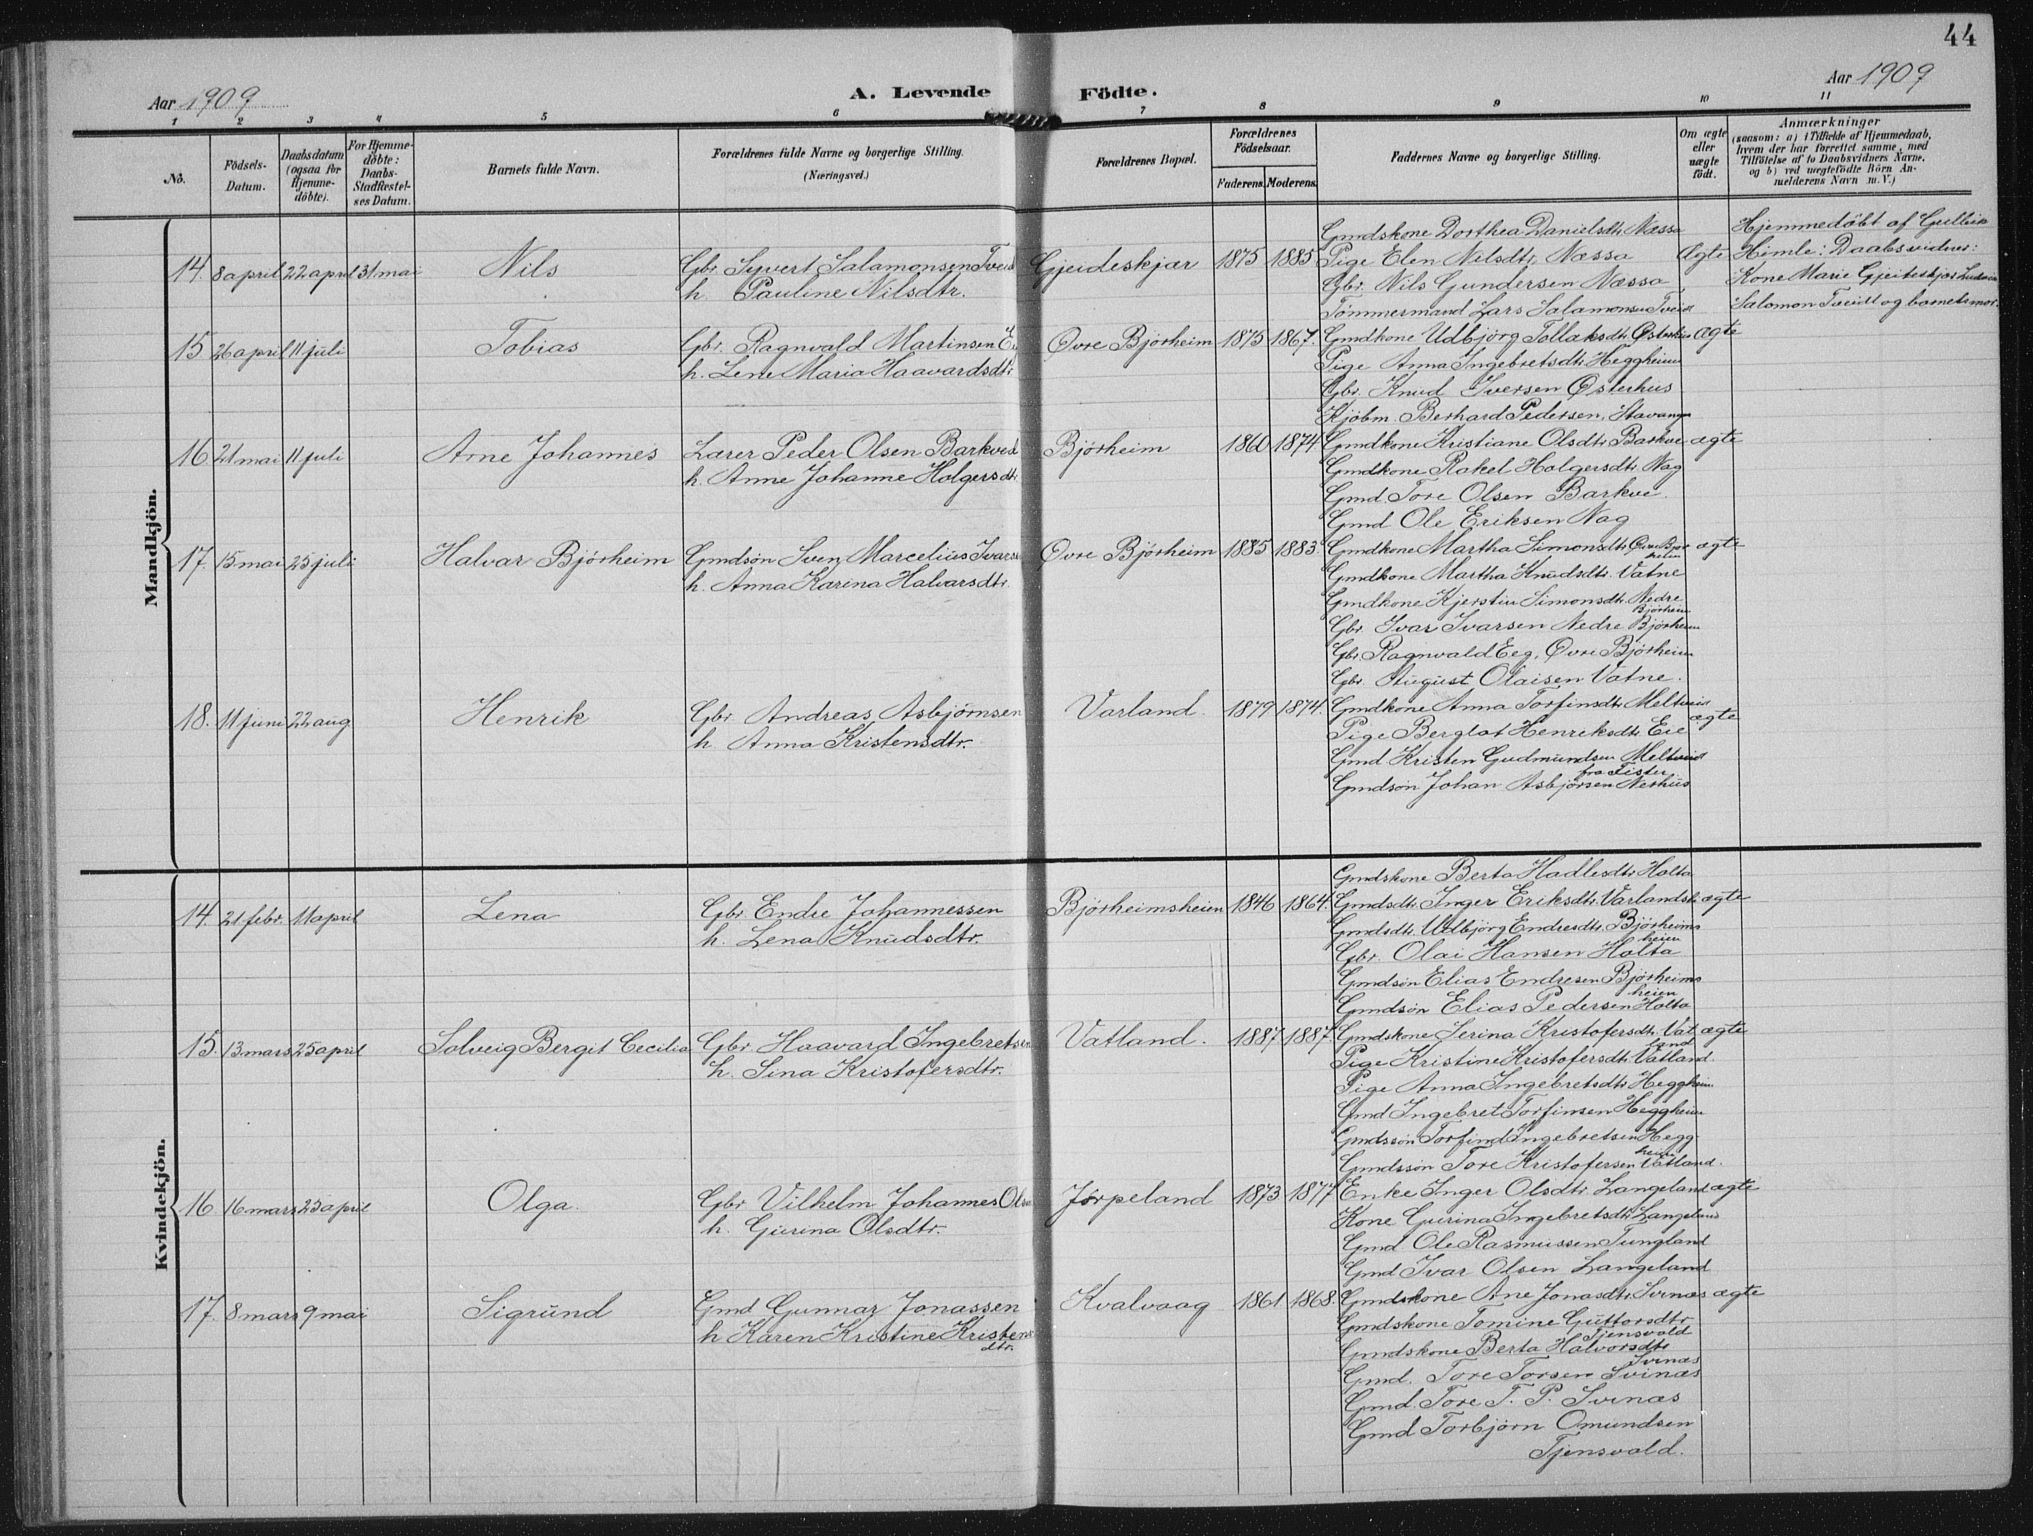 44
Aar 1909
A. Levende Födte.
Aar 1909
1 2 3 4 5 6 7 8 9 10 11
No.
Födsels-
Datum.
Daabsdatum
(ogsaa for
Hjemme-
döbte).
For Hjemme-
döbte:
Daabs-
Stadfæstel-
ses Datum.
Barnets fulde Navn.
Forældrenes fulde Navne og borgerlige Stilling.
(Næringsvei.)
Forældrenes Bopæl.
Forældrenes
Födselsaar.
Faderens. Moderens.
Faddernes Navne og borgerlige Stilling.
Om ægte
eller
uægte
födt.
Anmærkninger
(saasom: a) i Tilfælde af Hjemmedaab,
hvem der har forrettet samme, med
Tilföielse af to Daabsvidners Navne,
og b) ved uægtefödte Börn An-
melderens Navn m. V.)
Mandkjön.
14. 8 april 22 april 31 mai Nils
Gbr. Syvert Salamonsen
h. Pauline Nilsdtr.
Gjeideskjær 1875 1885
Gmdskone Dorthea Danielsdtr. Næssa
Pige Elen Nilsdtr. Næssa
Gbr. Nils Gundersen Næssa
Tömmermand Lars Salamonsen Tveid
Ægte
Hjemmedöbt af
Himle: Daabsvidner:
Kone Marie
Salomon Tveidt og barnets mor.
15 26 april 11 juli Tobias
Gbr. Ragnvald Martinsen
h. Lene Maria Haavardsdtr.
Øvre Björheim 1875 1867.
Gmdkone Udbjörg Tollaksdtr. Østerhus
Pige Anna Ingebretsdtr. Heggheim
Gbr. Knud Iversen Østerhus
Kjöbm. Berhard Pedersen, Stavanger
ægte
16. 21 mai 11 juli Arne Johannes
Lærer Peder Olsen Barkved
h. Anne Johanne Holgersdtr.
Björheim 1860 1874
Gmdkone Kristiane Olsdtr. Barkve
Gmdkone Rakel Holgersdtr. Nag
Gmd. Tore Olsen Barkve.
Gmd Ole Eriksen Nag
ægte
17. 15 mai 25 juli Halvar Björheim
Gmdsön Sven Marcelius Ivarse
h. Anna Karina Halvarsdtr.
Øvre Björheim 1885 1883.
Gmdkone Martha Simonsdtr. Øvre Bjor
heim
Gmdkone Martha Knudsdtr. Vatne
Gmdkone Kjerstin Simonsdtr. Nedre
Björheim
Gbr. Ivar Ivarsen Nedre Björheim
Gbr. Ragnvald Eeg, Øvre Björheim
Gbr. August Olaisen Vatne.
ægte
18. 11 juni 22 aug Henrik
Gbr Andreas Asbjörnsen
h. Anna Kristensdtr.
Varland. 1879 1874.
Gmdkone Anna Torfinsdtr. Meltveid
Pige Berglot Henriksdtr. Eie
Gmd. Kristen Gudmundsen Meltveid
fra Fister
Gmdsön Johan Asbjörsen Nerhus
ægte
Kvindekjön.
14. 21 febr. 11 april Lena
Gbr. Endre Johannessen
h. Lena Knudsdtr.
Björheimsheien 1846 1864.
Gmdskone Berta Hadlesdtr. Holta
Gmdsdtr. Inger Eriksdtr. Varlands
Gmdsdtr. Udbjörg Endresdtr. Björheims
heien
Gbr. Olai Hansen Holta
Gmdsön Elias Endresen Björheims
heien
Gmdsön Elias Pedersen Holta
ægte
15 13 mars 25 april Solveig Bergit Cecilia
Gbr. Haavard Ingebretsen
h. Sina Kristofersdtr.
Vatland. 1887 1887.
Gmdskone Serina Kristofersdtr. Vat
land
Pige Kristine Kristofersdtr. Vatland.
Pige Anna Ingebretsdtr. Heggheim
Gmd Ingebret Torfinsen Heggheim
Gmdssön Torfind Ingebretsen Hegg
heim
Gmdssön Tore Kristofersen Vatland.
ægte
16 16 mars 25 april Olga.
Gbr Vilhelm Johannes Olsen
h. Gurina Olsdtr.
Jörpeland 1873 1877
Enke Inger Olsdtr. Langeland
Kone Gurina Ingebretsdtr. Langeland
Gmd. Ole Rasmussen Tungland
Gmd Ivar Olsen Langeland
ægte
17. 8 mars 9 mai Sigrund
Gmd Gunnar Jonassen
h Karen Kristine Kristens
dtr.
Kvalvaag 1861 1868.
Gmdskone Ane Jonasdtr. Svinæs
Gmdskone Tomine Guttorsdtr.
Tjensvold
Gmdskone Berta Halvorsdtr
Svinæs
Gmd. Tore Torsen Svinæs
Gmd. Tore T. P. Svinæs
Gmd Torbjörn Omundsen
Tjensvold.
ægte